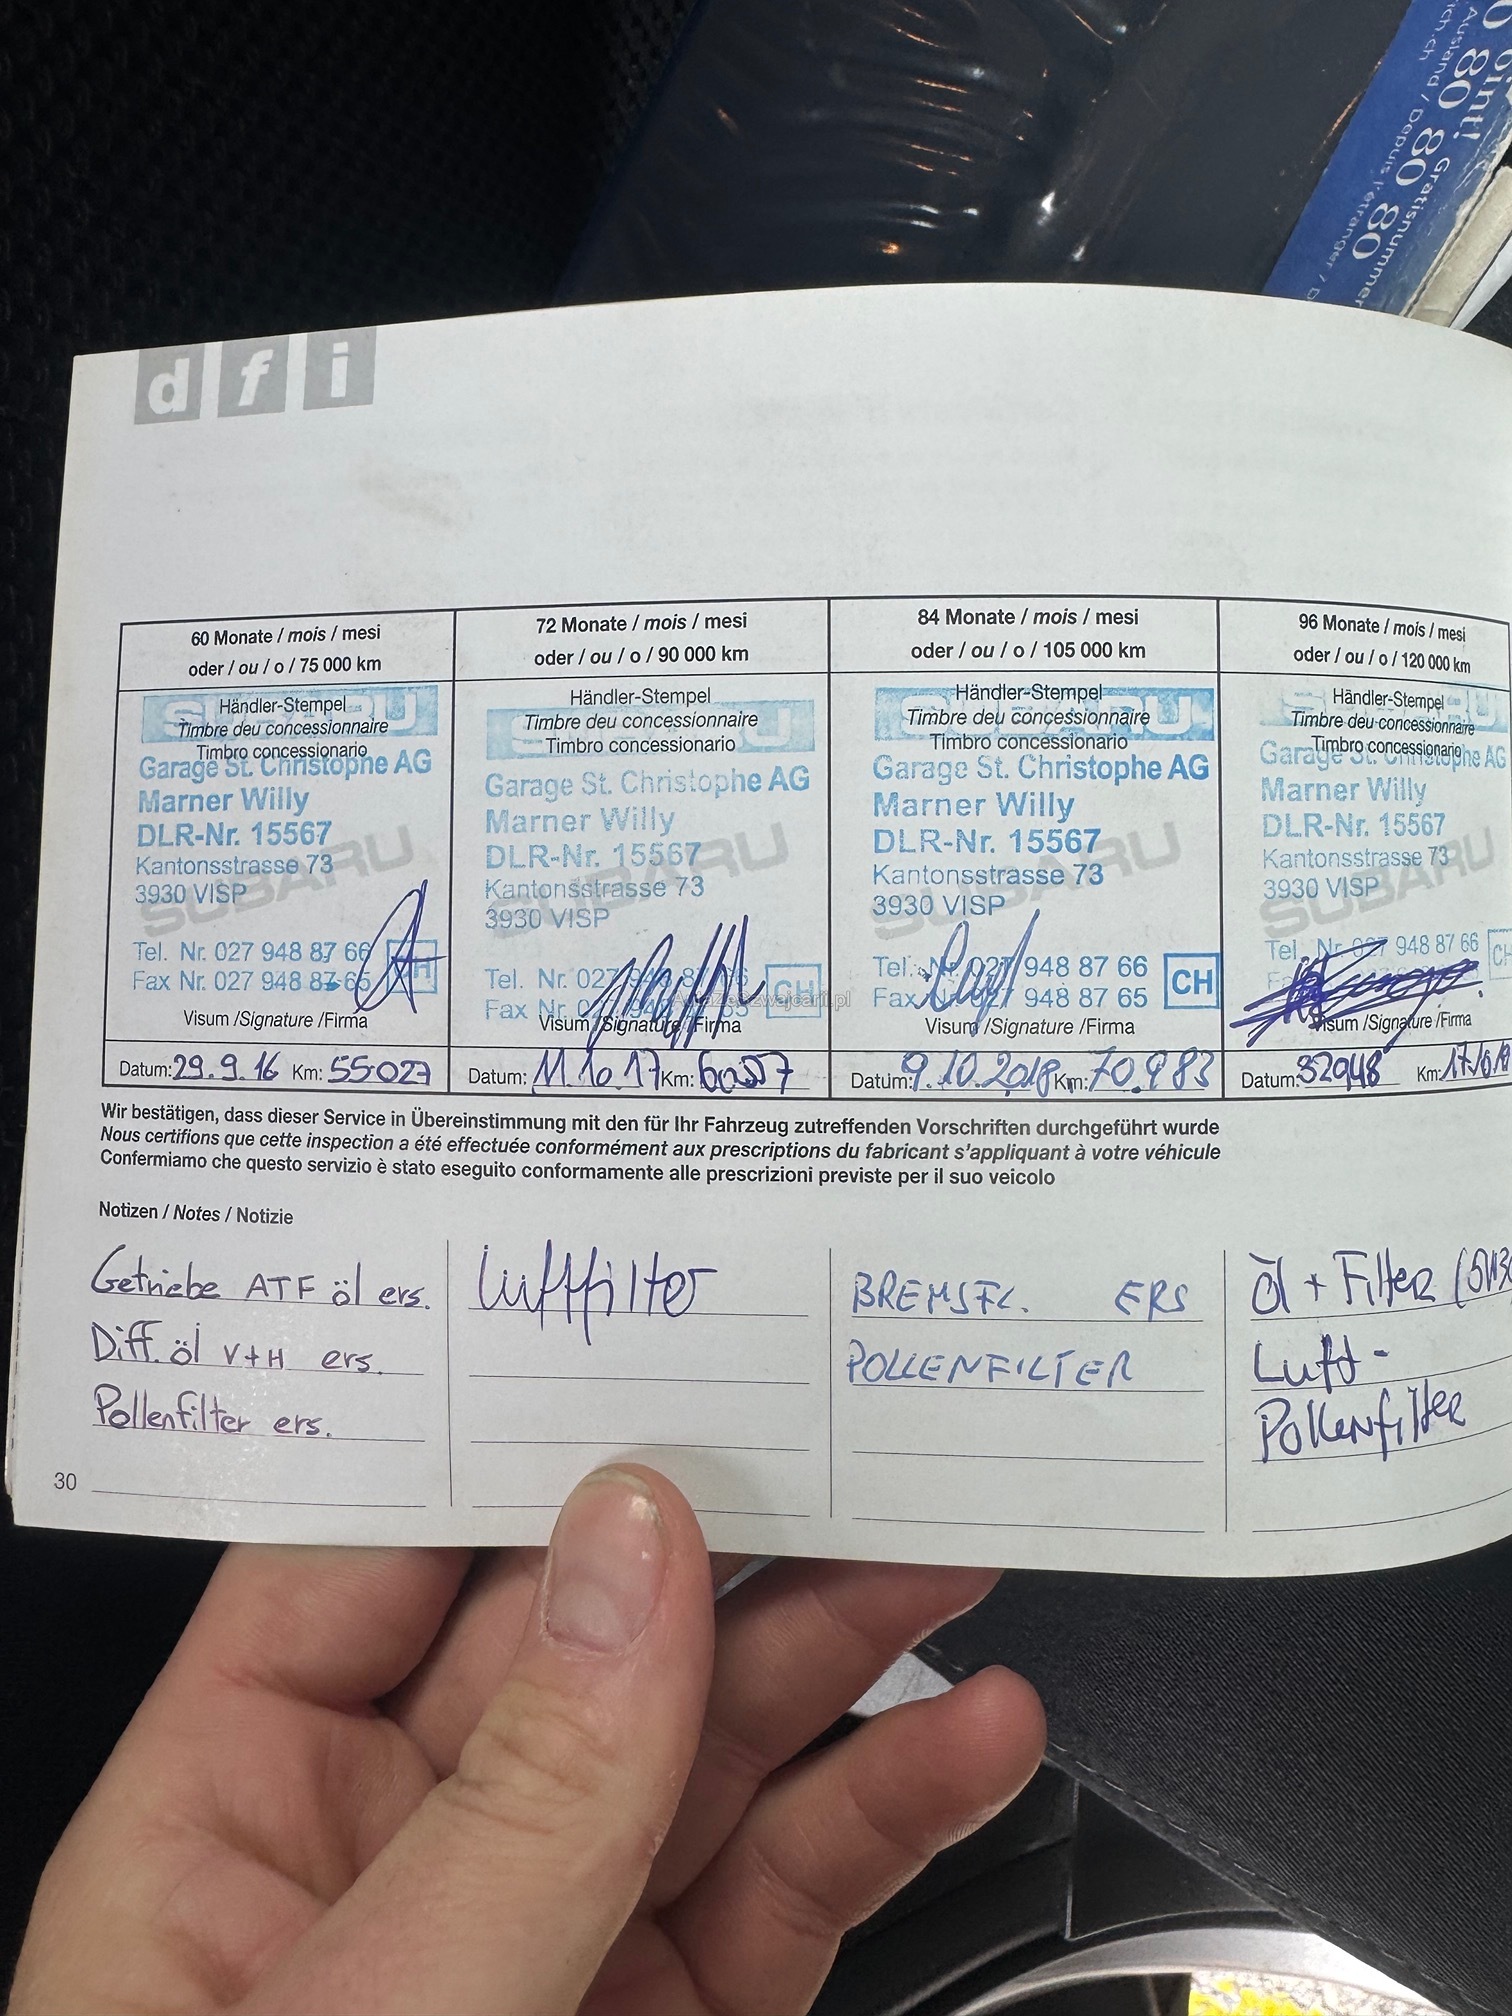 d f i
60 Monate / mois / mesi
oder / ou / o / 75 000 km
Händler-Stempel
Timbre deu concessionnaire
Timbro concessionario
SUBARU
Garage St. Christophe AG
Marner Willy
DLR-Nr. 15567
Kantonsstrasse 73
3930 VISP
SUBARU
Tel. Nr. 027 948 87 66
Fax Nr. 027 948 87 65
CH
Visum /Signature /Firma
Datum: 29.9.16 Km: 55027
72 Monate / mois / mesi
oder / ou / o / 90 000 km
Händler-Stempel
Timbre deu concessionnaire
Timbro concessionario
Garage St. Christophe AG
Marner Willy
DLR-Nr. 15567
Kantonsstrasse 73
3930 VISP
SUBARU
Tel. Nr. 027 948 87 66
Fax Nr. 027 948 87 65
CH
Visum /Signature /Firma
Datum: 11.10.17 Km:
84 Monate / mois / mesi
oder / ou / o / 105 000 km
Händler-Stempel
Timbre deu concessionnaire
Timbro concessionario
SUBARU
Garage St. Christophe AG
Marner Willy
DLR-Nr. 15567
Kantonsstrasse 73
3930 VISP
SUBARU
Tel. Nr. 027 948 87 66
Fax Nr. 027 948 87 65
CH
Visum /Signature /Firma
Datum: 9.10.2018 Km: 70.983
96 Monate / mois / mesi
oder / ou / o / 120 000 km
Händler-Stempel
Timbre deu concessionnaire
Timbro concessionario
Garage St. Christophe AG
Marner Willy
DLR-Nr. 15567
Kantonsstrasse 73
3930 VISP
SUBARU
Tel. Nr. 027 948 87 66
CH
Visum /Signature /Firma
Datum: Km:
Wir bestätigen, dass dieser Service in Übereinstimmung mit den für Ihr Fahrzeug zutreffenden Vorschriften durchgeführt wurde
Nous certifions que cette inspection a été effectuée conformément aux prescriptions du fabricant s'appliquant à votre véhicule
Confermiamo che questo servizio è stato eseguito conformamente alle prescrizioni previste per il suo veicolo
Notizen / Notes / Notizie
Getriebe ATF öl ers.
Diff. öl V+H ers.
Pollenfilter ers.
Luftfilter
BREMSFL. ERS
POLLENFILTER
Öl + Filter
Luft -
Pollenfilter
30
80 80 80
Gratisnummer
Ausland / Depuis l'étranger / D